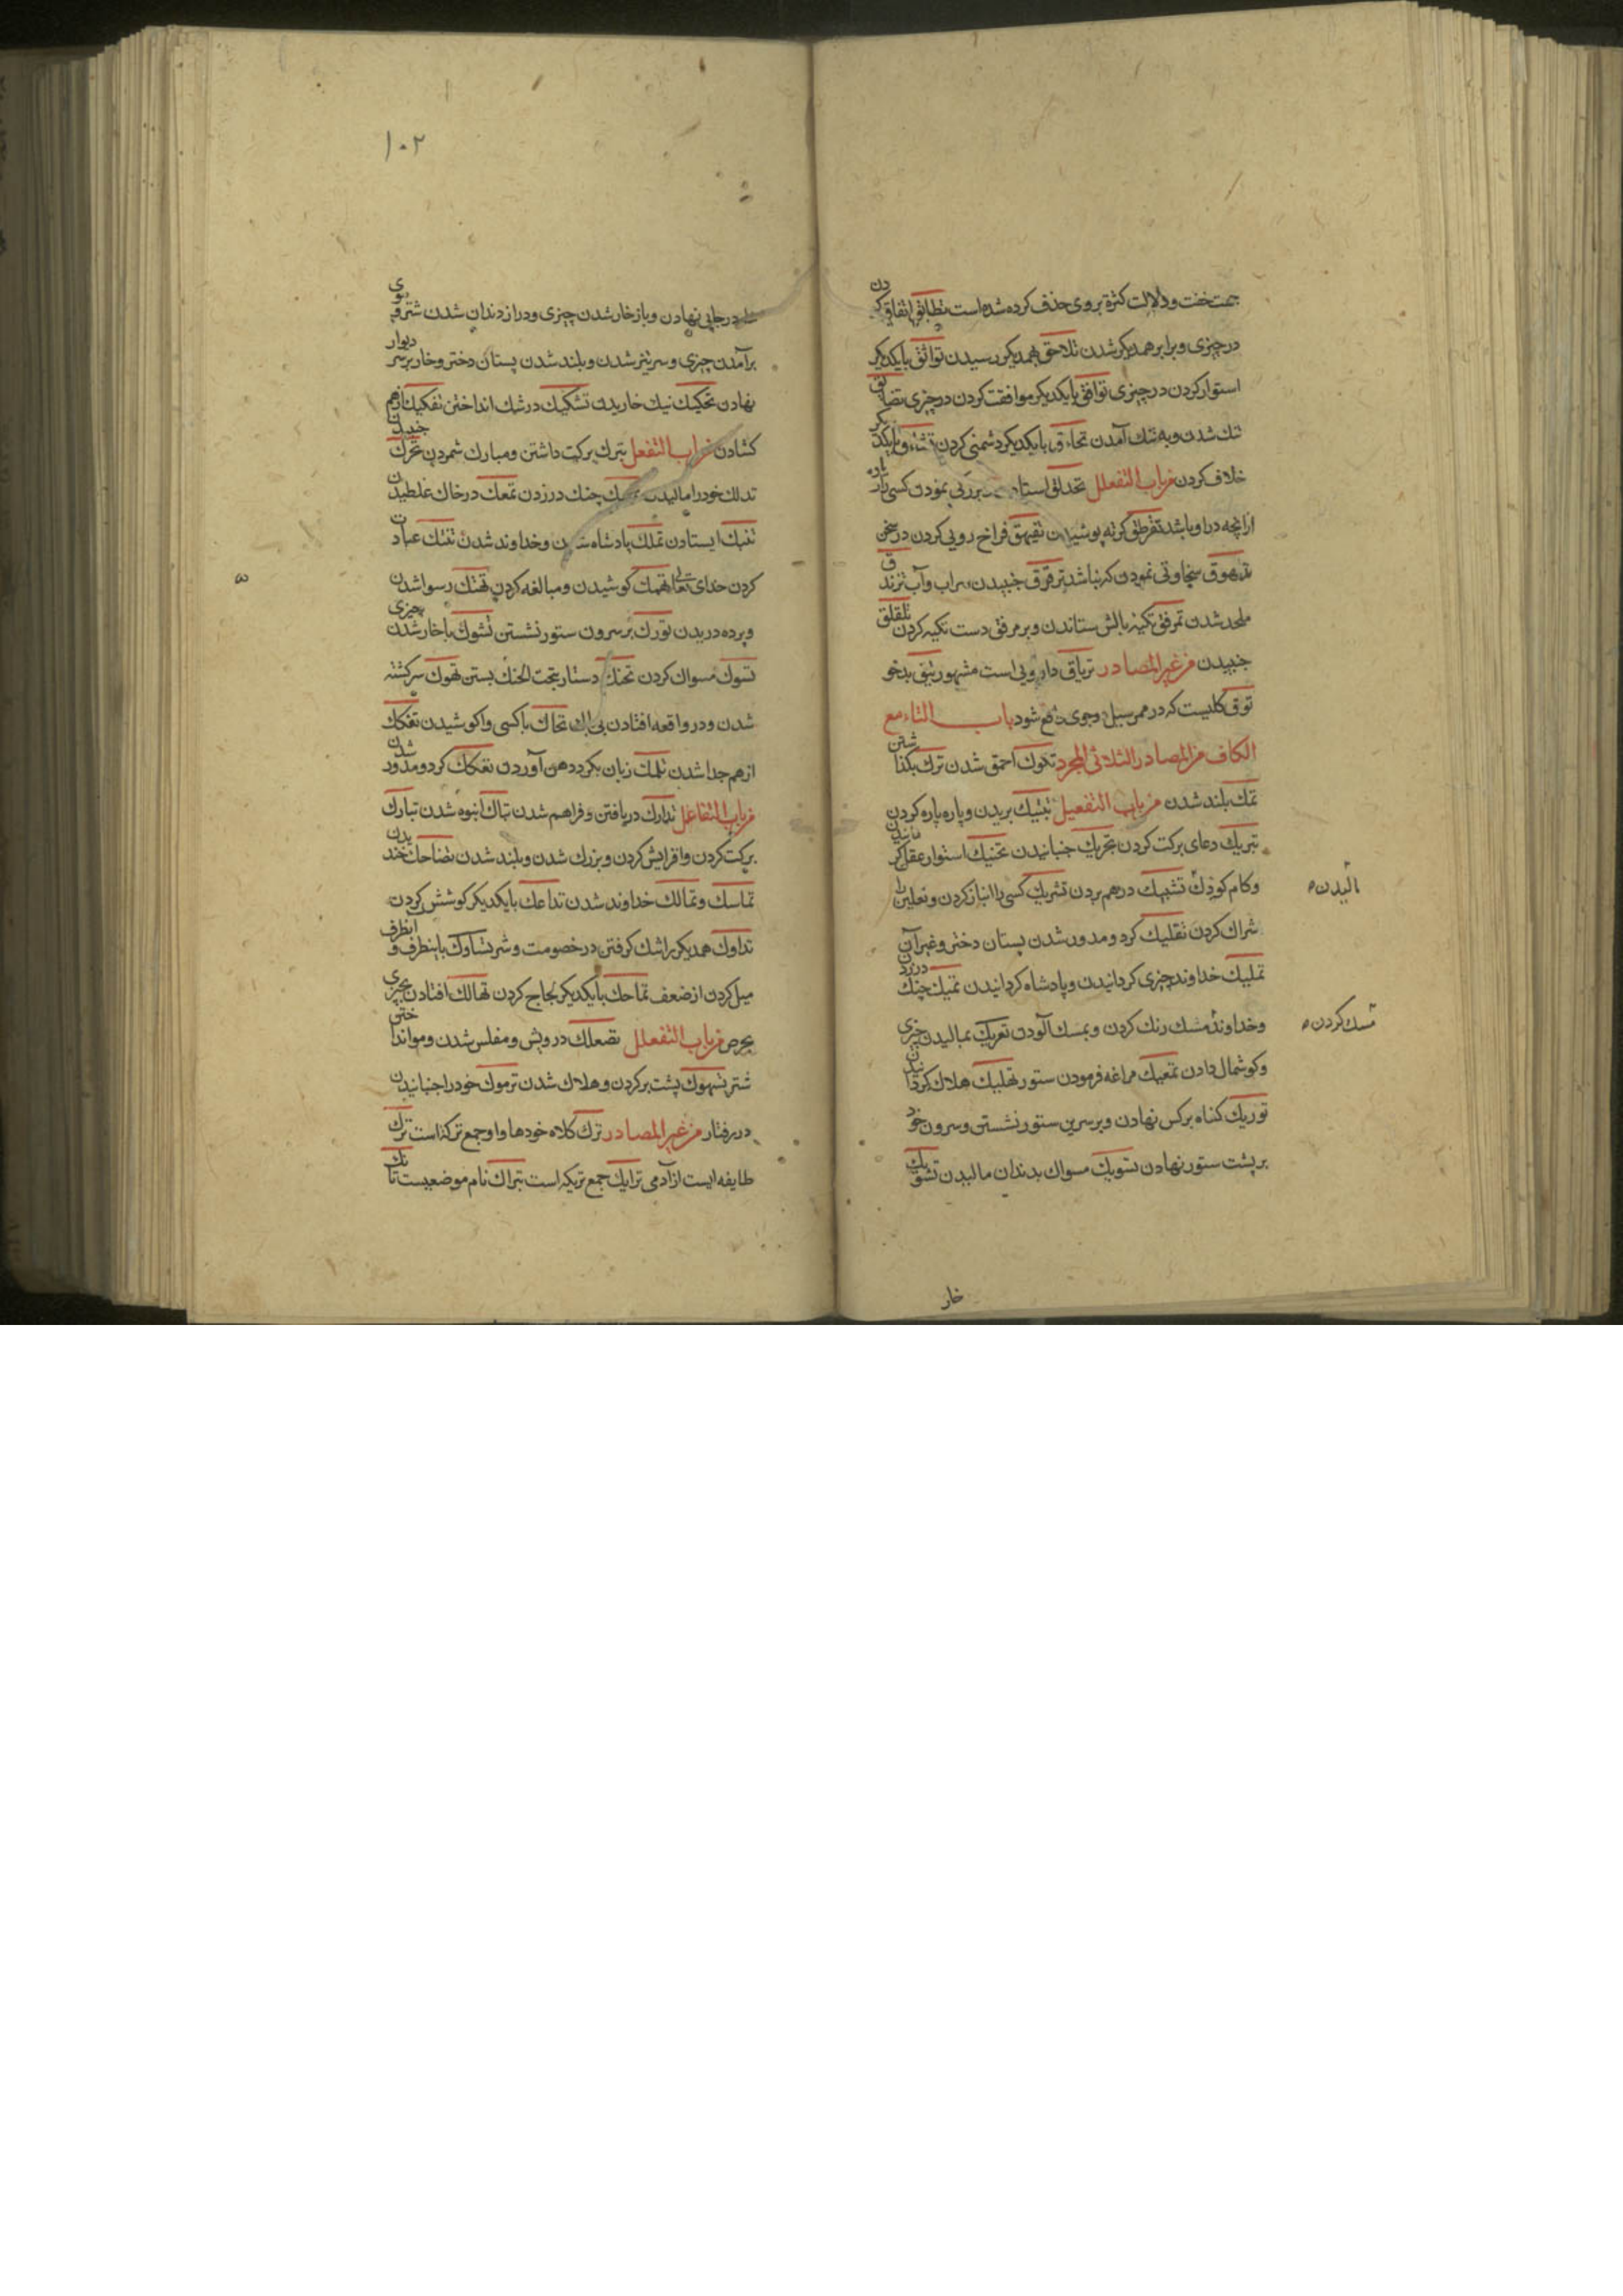 جهت خفت و دلالت کثرة بر وی حذف کرده شده است تطابق اتفاق کردن
در چیزی و برابر همدیکر شدن تلاحق بهمدیکر رسیدن تواثق بایکدیکر
استوار کردن در چیزی توافق بایکدیکر موافقت کردن در چیزی تضایق
تنک شدن و به تنک آمدن بایکدیکر دشمنی کردن بایکدیکر
خلاف کردن من باب التفعلل تحذلق نمودن کسی زیاده
ازانچه در او باشد تقرطق کرته پوشیدن تفیهق فراخ رویی کردن در سخن
سخاوتی نمودن که نباشد ترقرق جنبیدن سراب و آب تزندق
ملحد شدن تمرفق تکیه بالش ستاندن و بر مرفق دست تکیه کردن تقلقل
جنبیدن من غیر المصادر تریاق دارویی است مشهور تئق بدخو
که در ممر سیل و جوی شود باب التاء مع
الکاف من المصادر الثلاثی المجرد احمق شدن ترک بکذاشتن
تمک بلند شدن من باب التفعیل تبتیک بریدن و پاره پاره کردن
تبریک دعای برکت کردن تحریک جنبانیدن تحنیک استوار عقل کردانیدن
و کام کودک مالیدن تشبیک در هم بردن تشریک کسی را انباز کردن و نعلین را
شراک کردن تفلیک کرد و مدور شدن پستان دختر و غیر آن
تملیک خداوند چیزی کردانیدن و پادشاه کردانیدن تمسیک چنک در زدن
و خداوند مسک رنک کردن و بمسک آلودن تعریک بمالیدن چیزی
مسک کردن
و کوشمال دادن تمعیک مراغه فرمودن ستور تهلیک هلاک کردانیدن
توریک کناه بر کس نهادن و بر سرین ستور نشستن و سرون خود
بر پشت ستور نهادن تسویک مسواک بدندان مالیدن تشویک
خار
۱۰۲
در جایی نهادن و باز خار شدن چیزی و دراز دندان شدن شتر و موی
برآمدن چیزی و سر تیز شدن و بلند شدن پستان دختر و خار بر سر دیوار
نهادن تحکیک نیک خاریدن تشکیک در شک انداختن تفکیک از هم
کشادن من باب التفعل تبرک برکت داشتن و مبارک شمردن تحرک جنبیدن
تدلک خود را مالیدن تمسک چنک در زدن تمعک در خاک غلطیدن
ایستادن تملک پادشاه شدن و خداوند شدن تنسک عبادت
کردن خدای تعالی کوشیدن و مبالغه کردن تهتک رسوا شدن
و پرده دریدن تورک بر سرون ستور نشستن تشوک با خار شدن چیزی
تسوک مسواک کردن تحنک دستار بتحت الحنک بستن تهوک سرکشته
شدن و در واقعه افتادن بی باک تحکک با کسی واکوشیدن تفکک
از هم جدا شدن تلمک زبان بکرد دهن آوردن تفلک کرد و مدور شدن
من باب التفاعل تدارک دریافتن و فراهم شدن انبوه شدن تبارک
برکت کردن و افزایش کردن و بزرک شدن و بلند شدن تضاحک خندیدن
تماسک و تمالک خداوند شدن تداعک بایکدیکر کوشش کردن
تداوک همدیکر را تنک کرفتن در خصومت و شر تساوک باینطرف و آنطرف
میل کردن از ضعف تماحک بایکدیکر لجاج کردن تهالک افتادن بچیزی
بحرص من باب التفعلل تصعلک درویش و مفلس شدن و موانداختن
شتر تسهوک پشت بر کردن و هلاک شدن ترهوک خود را جنبانیدن
در رفتار من غیر المصادر ترک کلاه خودها و او جمع ترکت است ترک
طایفه ایست از آدمی ترایک جمع تریکه است تبراک نام موضعیست